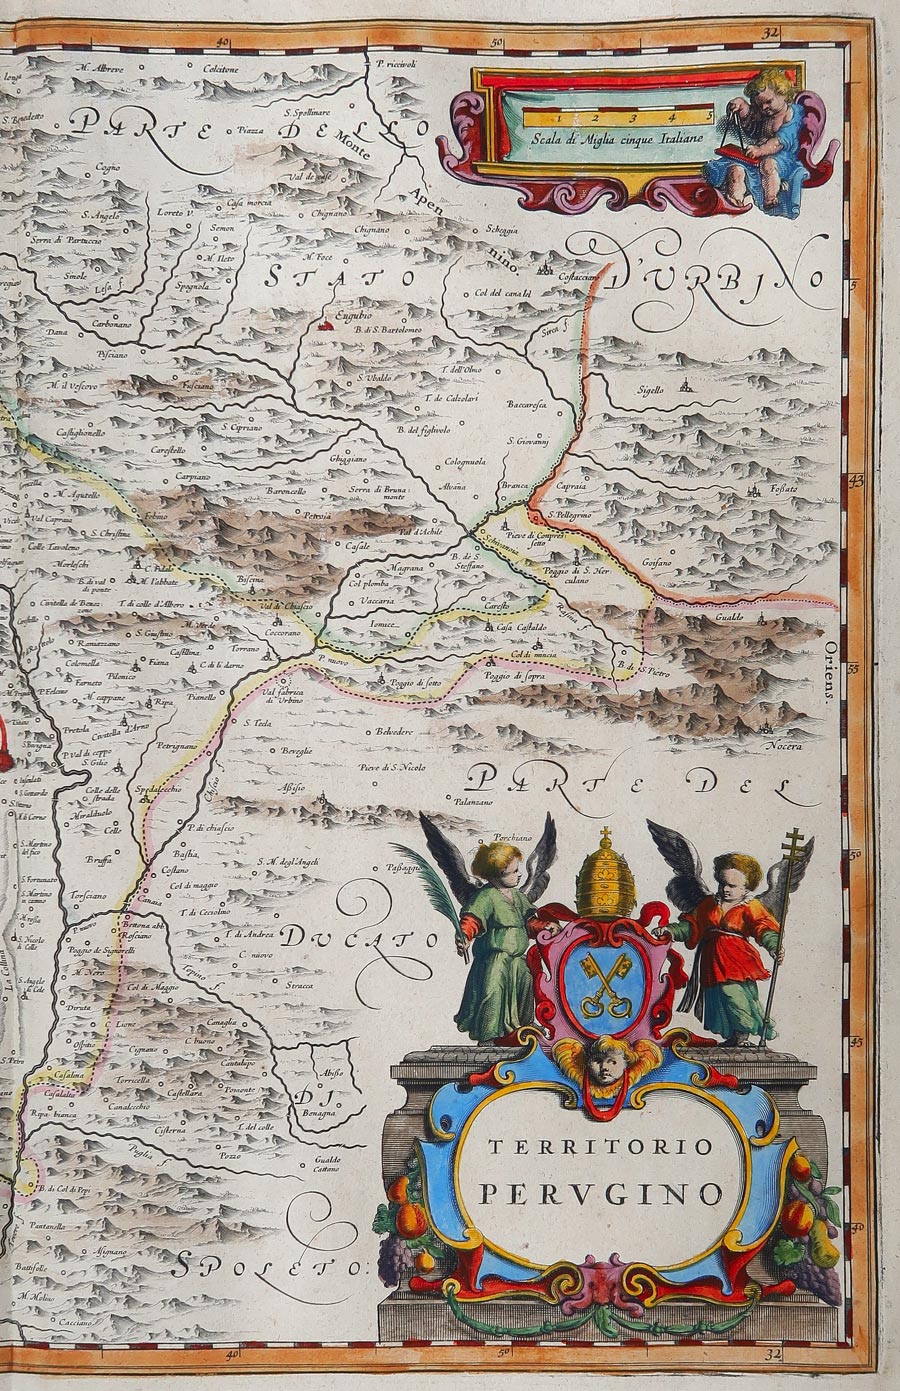 40
50
32
M. Albreve
Colcitone
P. riccivoli
S. Benedetto
PARTE DELLO
Piazza
S. Spollinare
Monte Apennino.
1 2 3 4 5
Scala di Miglia cinque Italiane
Cogno
Casa morcia
S. Angelo
Loreto V.
Chignano
Semon
Chignano
Scheggia
Serra di Partuccio
M. Ileto
M. Foce
STATO
D'URBINO
Costacciaro
Siole
Lesa f.
Spognola
Col del canale
5
Eugubio
Carbonano
B. di S. Bartolomeo
Sirca f.
Dana
Pisciano
T. dell'Olmo
M. il Vescovo
Fusciano
S. Vbaldo
Sigello
T. de Calzolari
Baccaresca
Castiglionello
S. Cipriano
B. del figlivolo
Carestello
S. Giovanni
Ghiggiano
Colognuola
Carpiano
Baroncello
Serra di Brunamonte
Alvana
Branca
Capraia
Fossato
43
M. Agutello
Febino
Petroia
S. Pellegrino
Val Caprana
S. Christina
Val d'Achile
Schivanoia
Pieve di Compresseto
Colle Tavoleno
Casale
B. di S. Steffano
Goifano
Morleschi
C. Fidele
Magrana
Poggio di S. Herculano
B. di val di ponte
M. l'abbate
Biscina
Col plomba
Civitella di Benezzone
T. di colle d'Albero
Val di Chiascio
Vaccaria
Caresto
Rasina f.
M. Verde
Iomice
Casa Castaldo
Gualdo
Ramazzano
S. Giustino
Coccorano
Castillina
Torrano
P. nuovo
Col di mincia
Oriens.
Colomella
Fiana
C. di li derno
B. di S. Pietro
55
Farneto
Pilonico
Poggio di sotto
Poggio di sopra
M. cappano
Pianello
Val fabrica di Urbino
Ripa
Pretola
Civitella d'Arno
S. Tecla
Belvedere
Petrignano
Beveglie
Nocera
S. Gilio
Pieve di S. Nicolo
PARTE DEL
Colle delle strada
Spedalecchio
Chiascio f.
Assisio
Palanzano
Miralduolo
Celle
P. di chiascio
Porchiano
Bruffa
Bastia,
S. M. degl'Angeli
Passaggio
50
Costano
Col di maggio
Torsciano
Canaia
T. di Cersolmo
P. nuovo
Bettona abb.
Rosciano
T. di Andrea
DUCATO
Poggio de Signorelli
C. nuovo
M. Nero
Tupino f.
Stracca
Col di Maggio
Deruta
C. Lione
Canaglia
45
Ospitio
Cignano
C. buono
Cantalupo
Casalina
Torricella
Abisso
Casalalta
Castellara
Pomonte
DI
Ripa bianca
Canalecchio
Bonagna
Cisterna
T. del colle
TERRITORIO
PERVGINO
Puglia f.
Pozzo
Gualdo Cattano
B. di Col di Pepi
Pantanella
40
Asignano
SPOLETO:
Battifolle
M. Molino
Cacciano
40
50
32